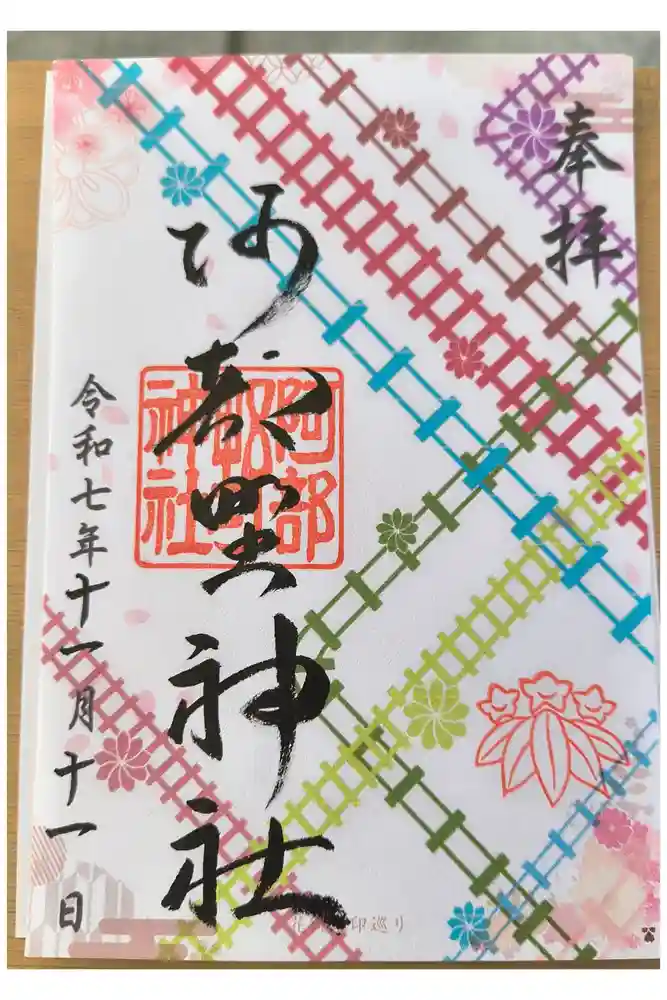 奉拝
阿部野神社
阿部野神社
令和七年十一月十一日
印巡り